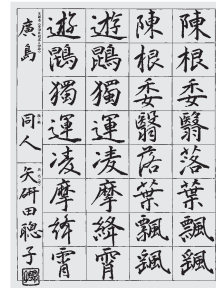 陳根委翳落葉飄颻
陳根委翳落葉飄颻
遊鵾獨運凌摩絳霄
遊鵾獨運凌摩絳霄
廣島 同人 矢研田聰子